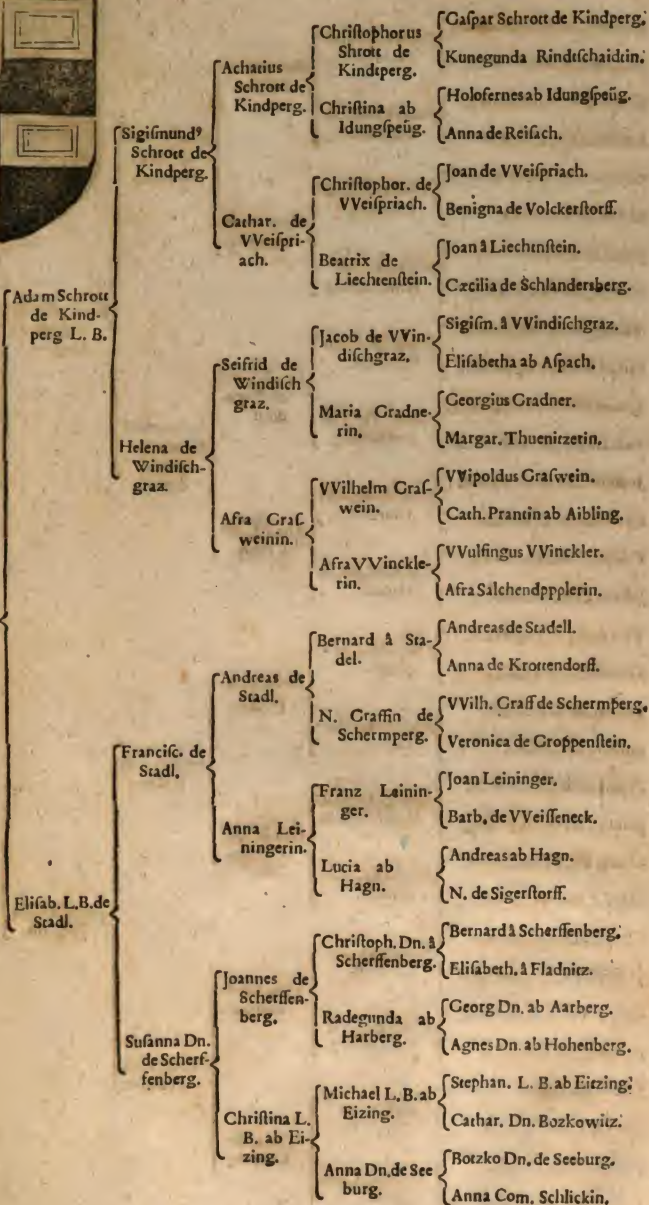 Adam Schrott
de Kind-
perg L. B.
Elisab. L.B.de
Stadl.
Sigiſmundꝰ
Schrott de
Kindperg.
Helena de
Windiſch-
graz.
Franciſc. de
Stadl.
Suſanna Dn.
de Scherf-
fenberg.
Achatius
Schrott de
Kindperg.
Cathar. de
VVeiſpri-
ach.
Seifrid de
Windiſch
graz.
Afra Graſ-
weinin.
Andreas de
Stadl.
Anna Lei-
ningerin.
Joannes de
Scherffen-
berg.
Chriſtina L.
B. ab Ei-
zing.
Chriſtophorus
Shrott de
Kindtperg.
Chriſtina ab
Idungſpeüg.
Chriſtophor. de
VVeiſpriach.
Beatrix de
Liechtenſtein.
Jacob de VVin-
diſchgraz.
Maria Gradne-
rin.
VVilhelm Graſ-
wein.
Afra VVinckle-
rin.
Bernard â Sta-
del.
N. Graffin de
Schermperg.
Franz Leinin-
ger.
Lucia ab
Hagn.
Chriſtoph. Dn. â
Scherffenberg.
Radegunda ab
Harberg.
Michael L. B. ab
Eizing.
Anna Dn. de See
burg.
Gaſpar Schrott de Kindperg.
Kunegunda Rindtſchaidtin.
Holofernes ab Idungſpeüg.
Anna de Reiſach.
Joan de VVeiſpriach.
Benigna de Volckerſtorff.
Joan â Liechtnſtein.
Cæcilia de Schlandersberg.
Sigiſm. â VVindiſchgraz.
Eliſabetha ab Aſpach.
Georgius Gradner.
Margar. Thuenitzerin.
VVipoldus Graſwein.
Cath. Prantin ab Aibling.
VVulfingus VVinckler.
Afra Salchendppplerin.
Andreas de Stadell.
Anna de Krottendorff.
VVilh. Graff de Schermperg.
Veronica de Groppenſtein.
Joan Leininger.
Barb. de VVeiſſeneck.
Andreas ab Hagn.
N. de Sigerſtorff.
Bernard â Scherffenberg.
Eliſabeth. â Fladnitz.
Georg Dn. ab Aarberg.
Agnes Dn. ab Hohenberg.
Stephan. L. B. ab Eitzing.
Cathar. Dn. Bozkowitz.
Botzko Dn. de Seeburg.
Anna Com. Schlickin.